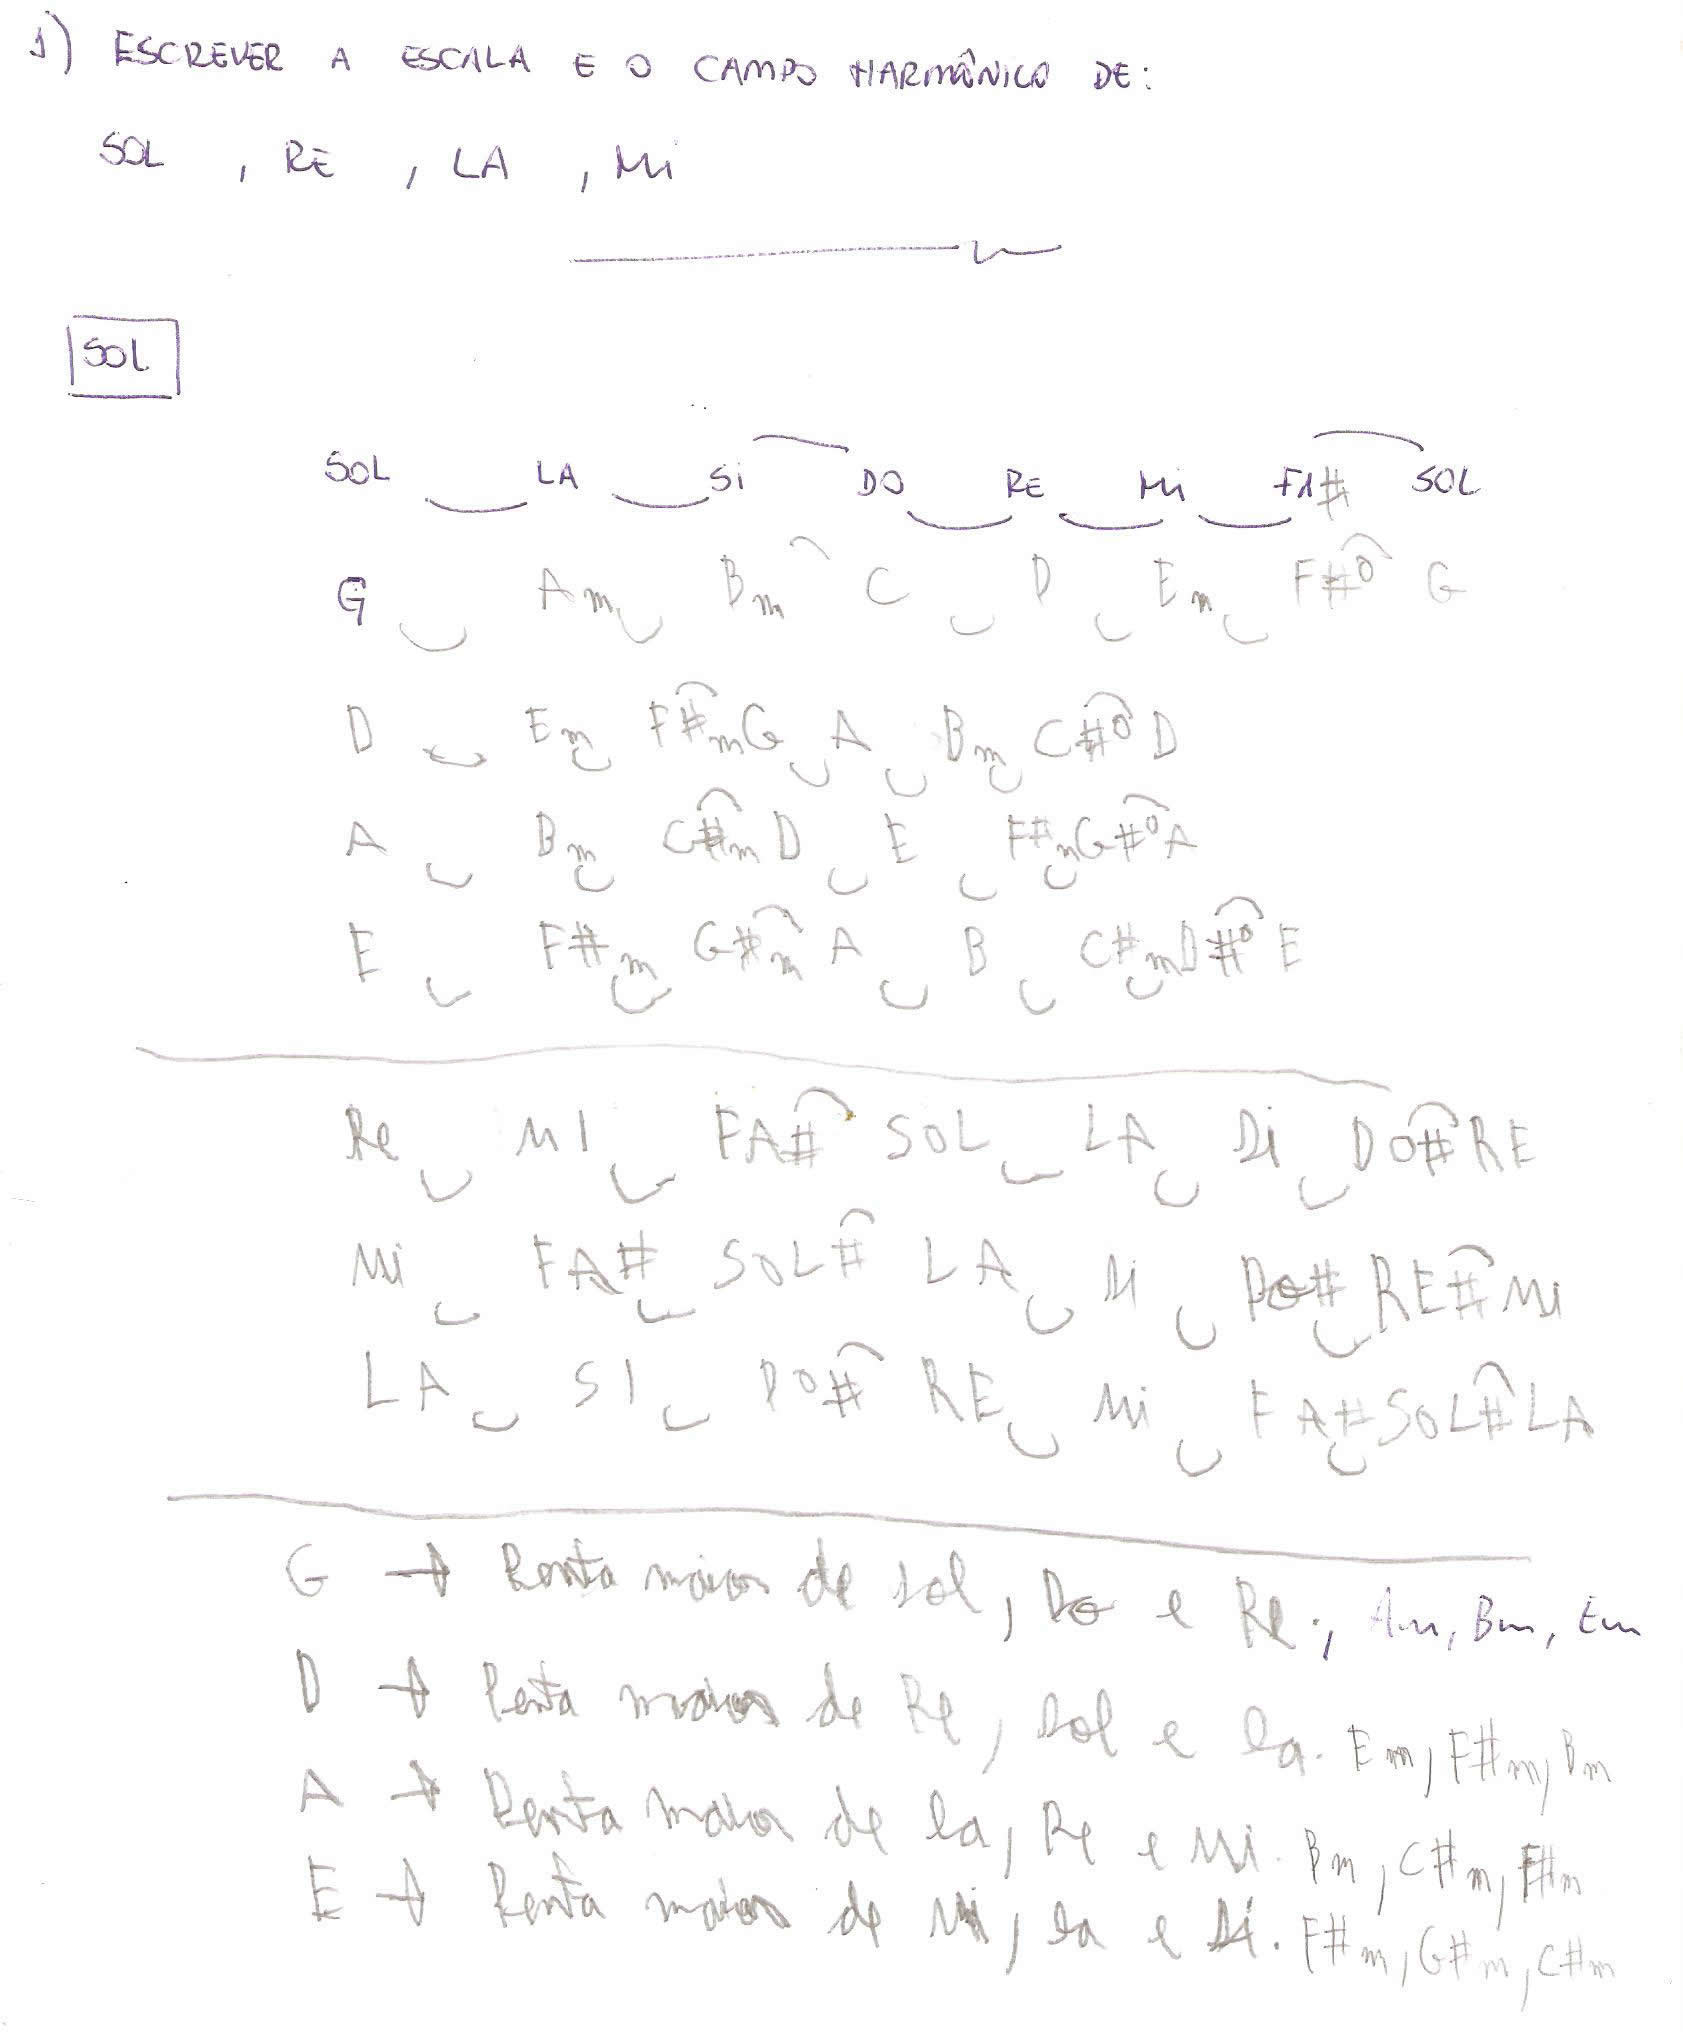 1) ESCREVER A ESCALA E O CAMPO HARMÔNICO DE:
SOL , RE , LA , Mi
SOL
SOL LA Si DO RE Mi FA# SOL
G Am Bm C D Em F#º G
D Em F#m G A Bm C#º D
A Bm C#m D E F#m G#º A
E F#m G#m A B C#m D#º E
Re MI FA# SOL LA Si DO# RE
Mi FA# SOL# LA Si DO# RE# Mi
LA SI DO# RE Mi FA# SOL# LA
G → Penta maior de sol, Do e Re., Am, Bm, Em
D → Penta maior de Re, Sol e la. Em, F#m, Bm
A → Penta maior de la, Re e Mi. Bm, C#m, F#m
E → Penta maior de Mi, la e Si. F#m, G#m, C#m